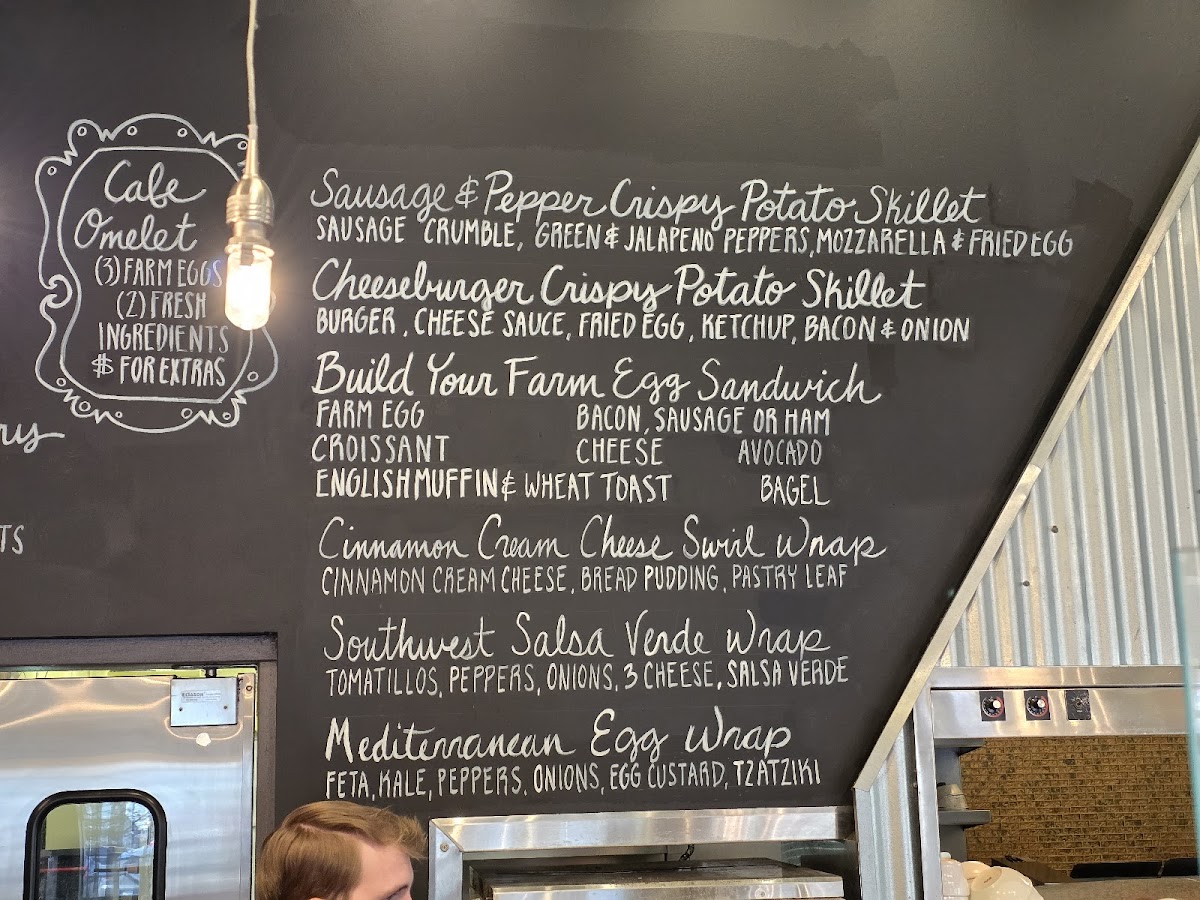 Cafe
Omelet
(3) FARM EGGS
(2) FRESH
INGREDIENTS
$ FOR EXTRAS
Sausage & Pepper Crispy Potato Skillet
SAUSAGE CRUMBLE, GREEN & JALAPENO PEPPERS, MOZZARELLA & FRIED EGG
Cheeseburger Crispy Potato Skillet
BURGER, CHEESE SAUCE, FRIED EGG, KETCHUP, BACON & ONION
Build Your Farm Egg Sandwich
FARM EGG BACON, SAUSAGE OR HAM
CROISSANT CHEESE AVOCADO
ENGLISH MUFFIN & WHEAT TOAST BAGEL
Cinnamon Cream Cheese Swirl Wrap
CINNAMON CREAM CHEESE, BREAD PUDDING, PASTRY LEAF
Southwest Salsa Verde Wrap
TOMATILLOS, PEPPERS, ONIONS, 3 CHEESE, SALSA VERDE
Mediterranean Egg Wrap
FETA, KALE, PEPPERS, ONIONS, EGG CUSTARD, TZATZIKI